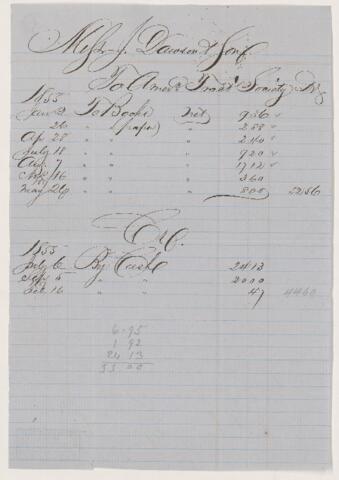 Messrs J. Dawson & Sons
To Amern Tract Society Dr
1855
Jany 2 To Books Net 936 ✓
" 26 " " (paper) " 288 ✓
Apr 28 " " " 240 ✓
July 18 " " " 920 ✓
Aug 7 " " " 1712 ✓
Nov 16 " " " 360
May 26 " " " 800 5256
Cr.
1855
July 6 By Cash 2413
Sept 5 " " 2000
Oct 16 " " 47 4460
6-95
1 92
24 13
33 00